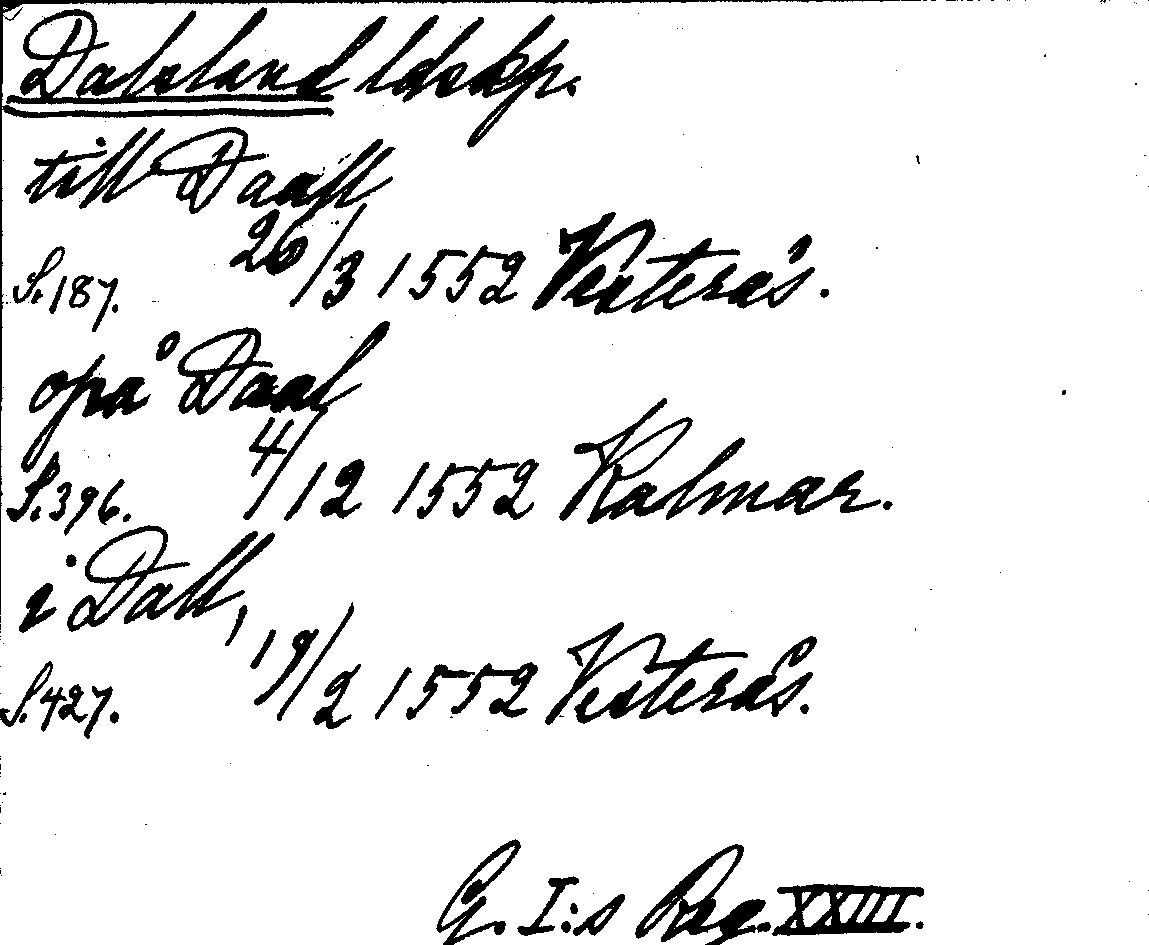 Dalsland ldskp.
till Daall
26/3 1552 Vesterås.
S. 187.
opå Daal
4/12 1552 Kalmar.
S. 396.
i Dall,
19/2 1552 Vesterås.
S. 427.
G. I:s Reg. XXIII.